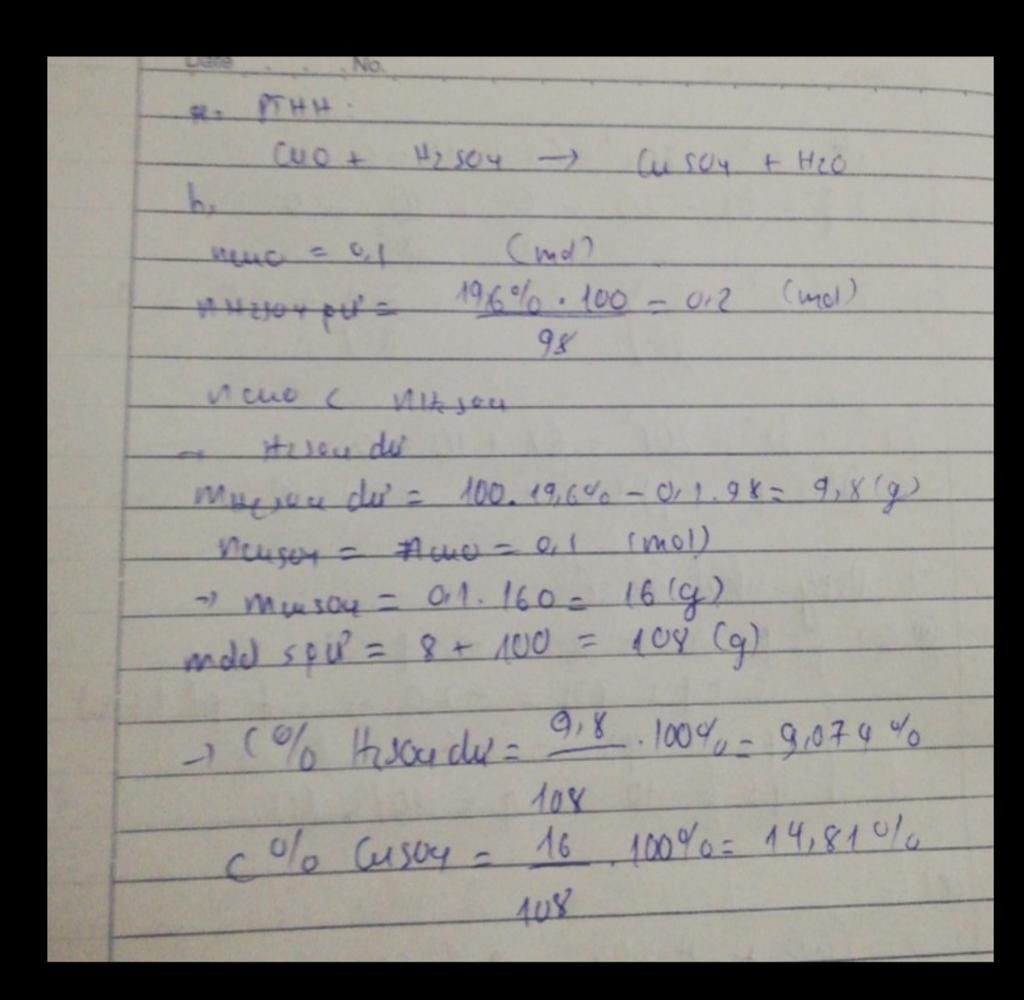 Date No.
a. PTHH:
CuO + H2SO4 → CuSO4 + H2O
b,
nCuO = 0,1 (mol)
nH2SO4 pứ = 19,6% . 100 / 98 = 0,2 (mol)
nCuO < nH2SO4
→ H2SO4 dư
mH2SO4 dư = 100.19,6% - 0,1.98 = 9,8 (g)
nCuSO4 = nCuO = 0,1 (mol)
→ mCuSO4 = 0,1.160 = 16 (g)
mdd spứ = 8 + 100 = 108 (g)
→ C% H2SO4 dư = 9,8 / 108 .100% = 9,074%
C% CuSO4 = 16 / 108 .100% = 14,81%